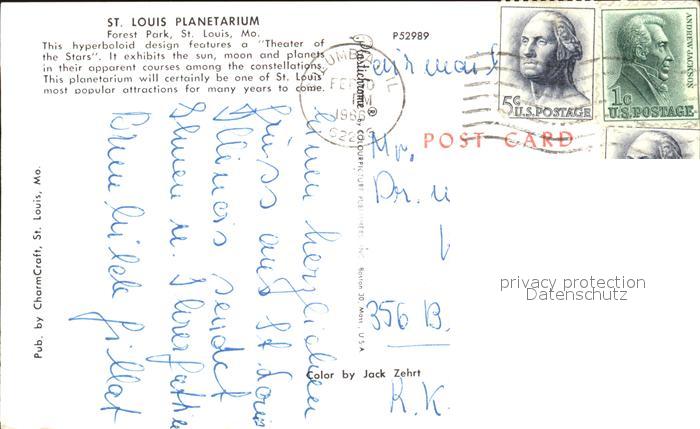 ST. LOUIS PLANETARIUM
Forest Park, St. Louis, Mo.
This hyperboloid design features a "Theater of
the Stars". It exhibits the sun, moon and planets
in their apparent courses among the constellations.
This planetarium will certainly be one of St. Louis
most popular attractions for many years to come.
P52989
air mail
5¢
U.S. POSTAGE
ANDREW JACKSON
1¢
U.S. POSTAGE
1966
POST CARD
Plastichrome ® by COLOURPICTURE PUBLISHERS, INC. Boston 30, Mass., U.S.A.
Pub. by CharmCraft, St. Louis, Mo.
einen herzlichen
Gruss aus St. Louis
Illinois sendet
Ihnen u. Ihrer
Mr.
Dr. u
356 B.
R.K.
Color by Jack Zehrt
privacy protection
Datenschutz